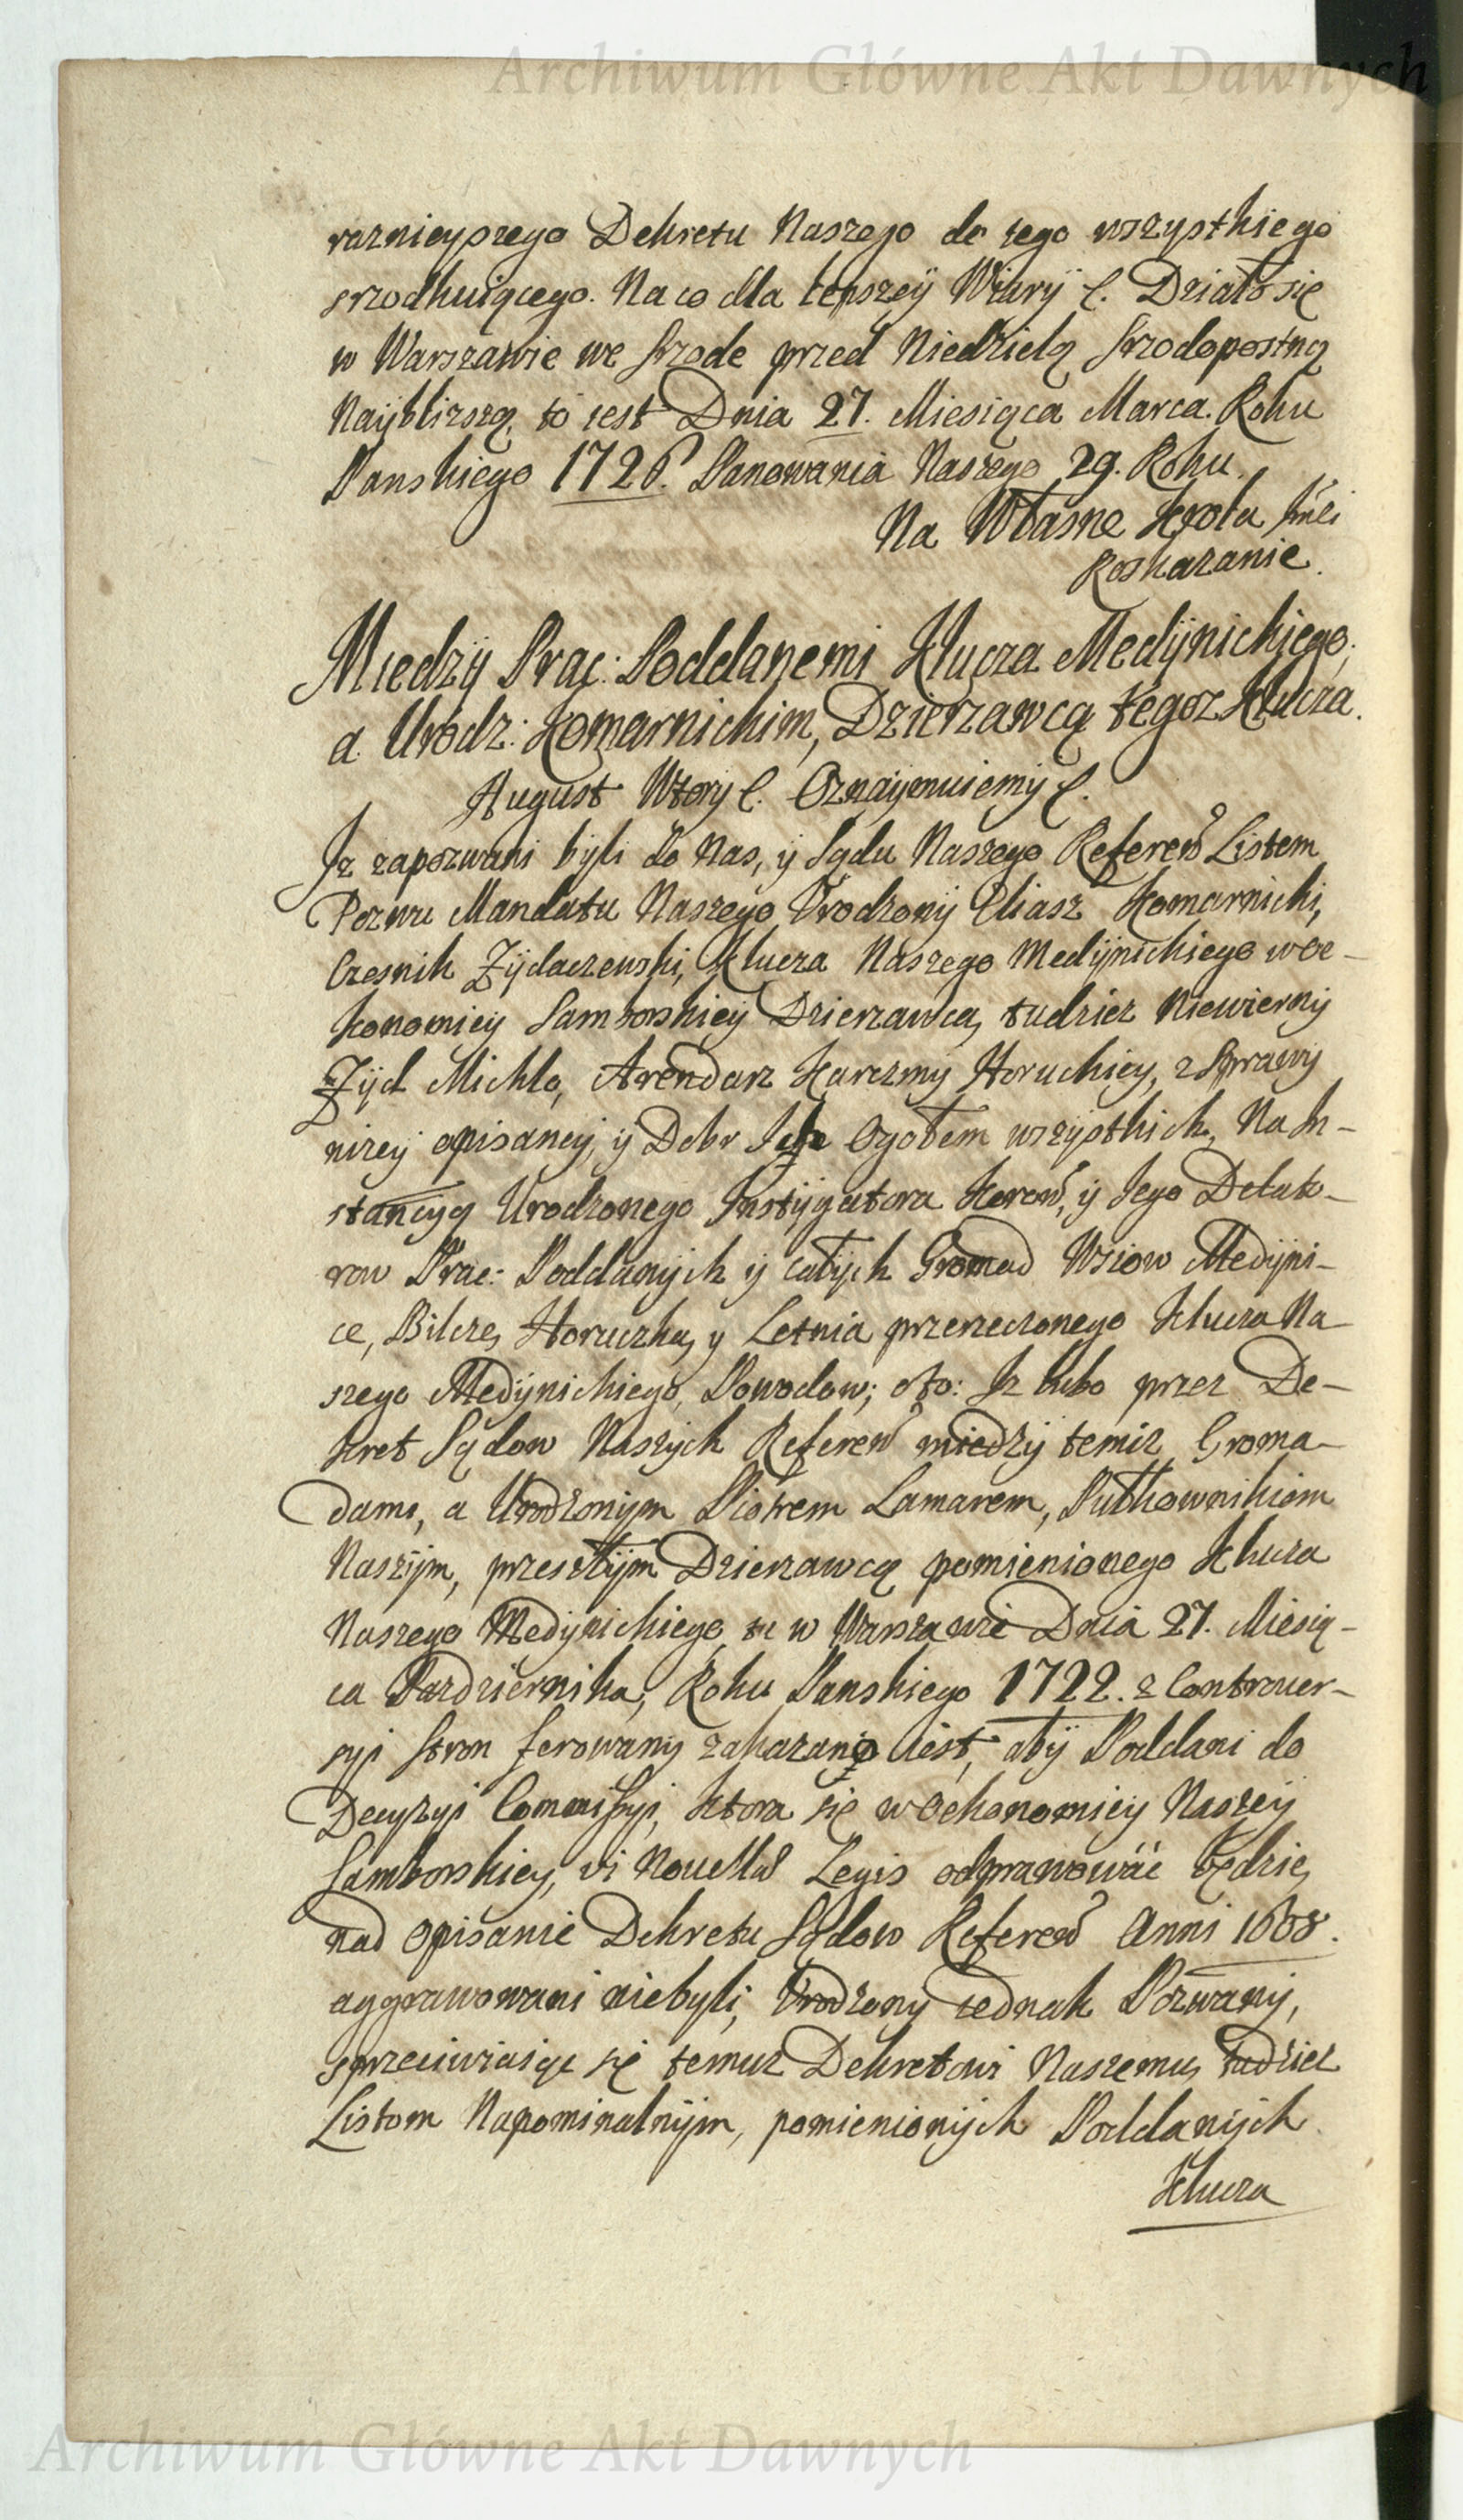 Archiwum Główne Akt Dawnych
raznieyszego Dekretu Naszego do tego wszystkiego
srzodkuiącego. Na co dla lepszeÿ Wiarÿ &. Działo się
w Warszawie we Srzode przed Niedzielą Srzodopostną
Naÿblizszą, to iest Dnia 27. Miesiąca Marca. Roku
Panskiego 1726. Panowania Naszego 29. Roku.
Na Własne Krola Jmći
Roskazanie.
Miedzÿ Prac: Poddanemi Klucza Medÿnickiego;
a Urodz: Komarnickim, Dzierzawcą tegoz Klucza.
August Wtory &. Oznaÿmuiemÿ &.
Jz zapozwani byli do Nas, ÿ Sądu Naszego Referen Listem
Pozwu Mandatu Naszego Urodzonÿ Eliasz Komarnicki,
Czesnik Zÿdaczewski, Klucza Naszego Medÿnickiego w Oe-
konomiey Samborskieÿ Dzierzawca, tudziez Niewiernÿ
Zÿd Michlo, Arendarz Karczmÿ Horuckiey, z Sprawÿ
nizeÿ opisaneÿ, ÿ Dobr Ich Ogołem wszÿstkich, Na In-
stancyą Urodzonego Instÿgatora Koron, ÿ Jego Delato-
row Prac: Poddanÿch ÿ całÿch Gromad Wsiow Medÿni-
ce, Bilcze, Horuczka, y Letnia przerzeczonego Klucza Na-
szego Medÿnickiego, Powodow; oto: Jz lubo przez De-
kret Sądow Naszÿch Referen miedzÿ temiz Groma-
dami, a Urodzonÿm Piotrem Lamarem, Pułkownikiem
Naszÿm, przeszłÿm Dzierzawcą pomienionego Klucza
Naszego Medÿnickiego, tu w Warszawie Dnia 27. Miesią-
ca Pazdziernika, Roku Panskiego 1722. z Controuer-
syi Stron ferowanÿ zakazano iest, abÿ Poddani do
Decyzyi Commissyi, ktora się w Oekonomieÿ Naszeÿ
Samborskieÿ, vi Nouellæ Legis odprawować będzie,
nad opisanie Dekretu Sądow Referen Anni 1608.
aggrawowani niebyli; Urodzony iednak Pozwanÿ,
sprzeciwiaiąc się temuz Dekretowi Naszemu, tudziez
Listom Napominalnÿm, pomienionÿch Poddanÿch
Klucza
Archiwum Główne Akt Dawnych